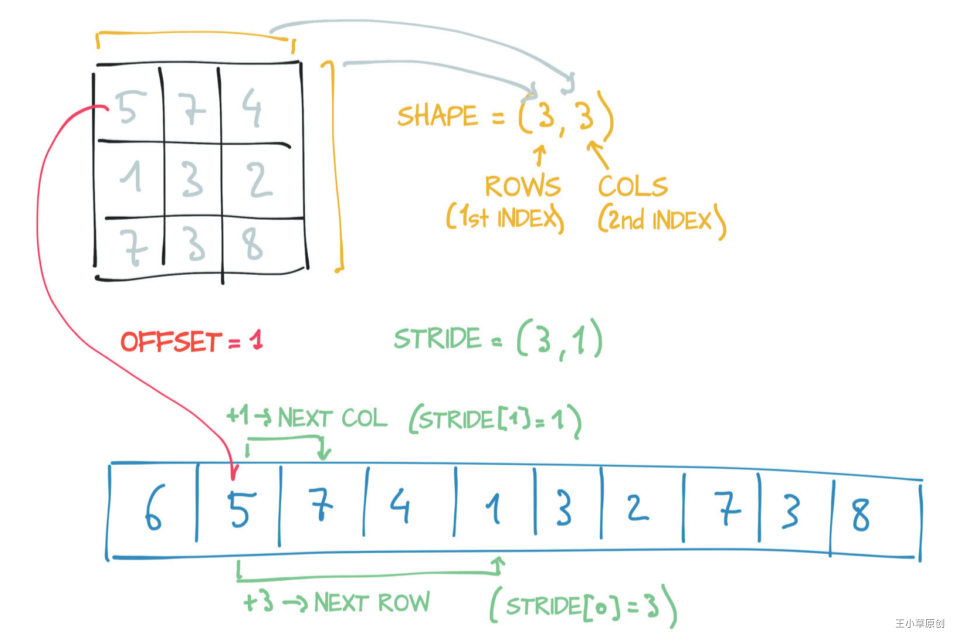 5 7 4
1 3 2
7 3 8
SHAPE = (3, 3)
ROWS
(1st INDEX)
COLS
(2nd INDEX)
OFFSET = 1
STRIDE = (3, 1)
+1 → NEXT COL (STRIDE[1]=1)
6 5 7 4 1 3 2 7 3 8
+3 → NEXT ROW (STRIDE[0]=3)
王小草原创